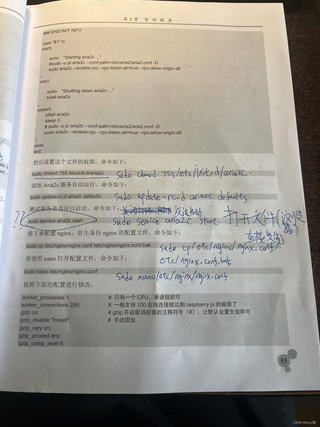 第 5 章 常 用 服 务
### END INIT INFO
case "$1" in
start)
echo "Starting aria2c ..."
#sudo -u pi aria2c --conf-path=/etc/aria2/aria2.conf -D
sudo aria2c --enable-rpc --rpc-listen-all=true --rpc-allow-origin-all
;;
stop)
echo "Shutting down aria2c ..."
killall aria2c
;;
restart)
killall aria2c
sleep 3
# sudo -u pi aria2c --conf-path=/etc/aria2/aria2.conf -D
sudo aria2c --enable-rpc --rpc-listen-all=true --rpc-allow-origin-all
;;
esac
exit
然后设置这个文件的权限，命令如下：
sudo chmod 755 /etc/init.d/aria2c
sudo chmod 755/etc/init.d/aria2c
添加 Aria2 服务自动运行，命令如下：
sudo update-rc.d aria2c defaults
sudo update-rc.d aria2c defaults
测试服务是否可以启动，命令如下：
sudo service aria2c start
sudo service aria2c start
打开文件
接下来配置 nginx，首先备份 nginx 的配置文件，命令如下：
sudo cp /etc/nginx/nginx.conf /etc/nginx/nginx.conf.bak
sudo cp/etc/nginx/nginx.conf/
etc/nginx.conf.bak
再使用 nano 打开配置文件，命令如下：
sudo nano /etc/nginx/nginx.conf
sudo nano/etc/nginx/nginx.conf
按照下面的配置进行修改：
worker_processes 1; # 只有一个 CPU，单进程即可
worker_connections 256; # 一般支持 100 在线连接就达到 raspberry pi 的极限了
gzip on; # gzip 开启取消前面的注释符号（#），让默认设置生效即可
gzip_disable "msie6"; # 手动添加
gzip_vary on;
gzip_proxied any;
gzip_comp_level 6;
93